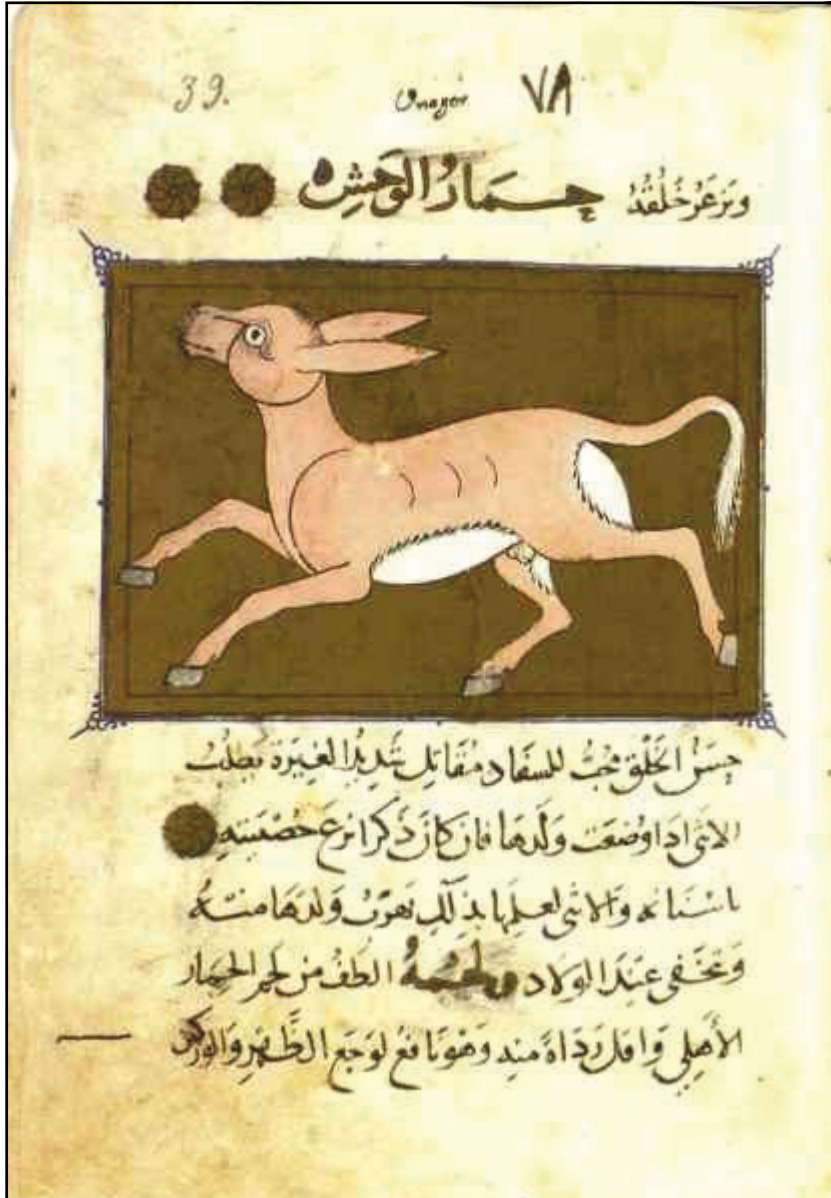 39. Onager ٧٨
وزعر خلقه حمارُ الوَحشِ ه
حسَنُ الخَلْق محبُّ للسفاد مُقَاتِل شديدُ الغيرة يطلبُ
الانثى اذا وضعت وَلَدهَا فان كانَ ذكرًا نزعَ خصْيَيْهِ
باسْنَانه وَالانثى لعلمِهَا بذلِكِ تهرّبُ وَلدهَا منْهُ
وَتختفى عنْدَ الولاد ولحمُهُ الطفُ من لحم الحمار
الأهلي وَاقل رَدَاةً منه وَهوَ نَافعُ لوَجَع الظَّهْرِ وَالوركين